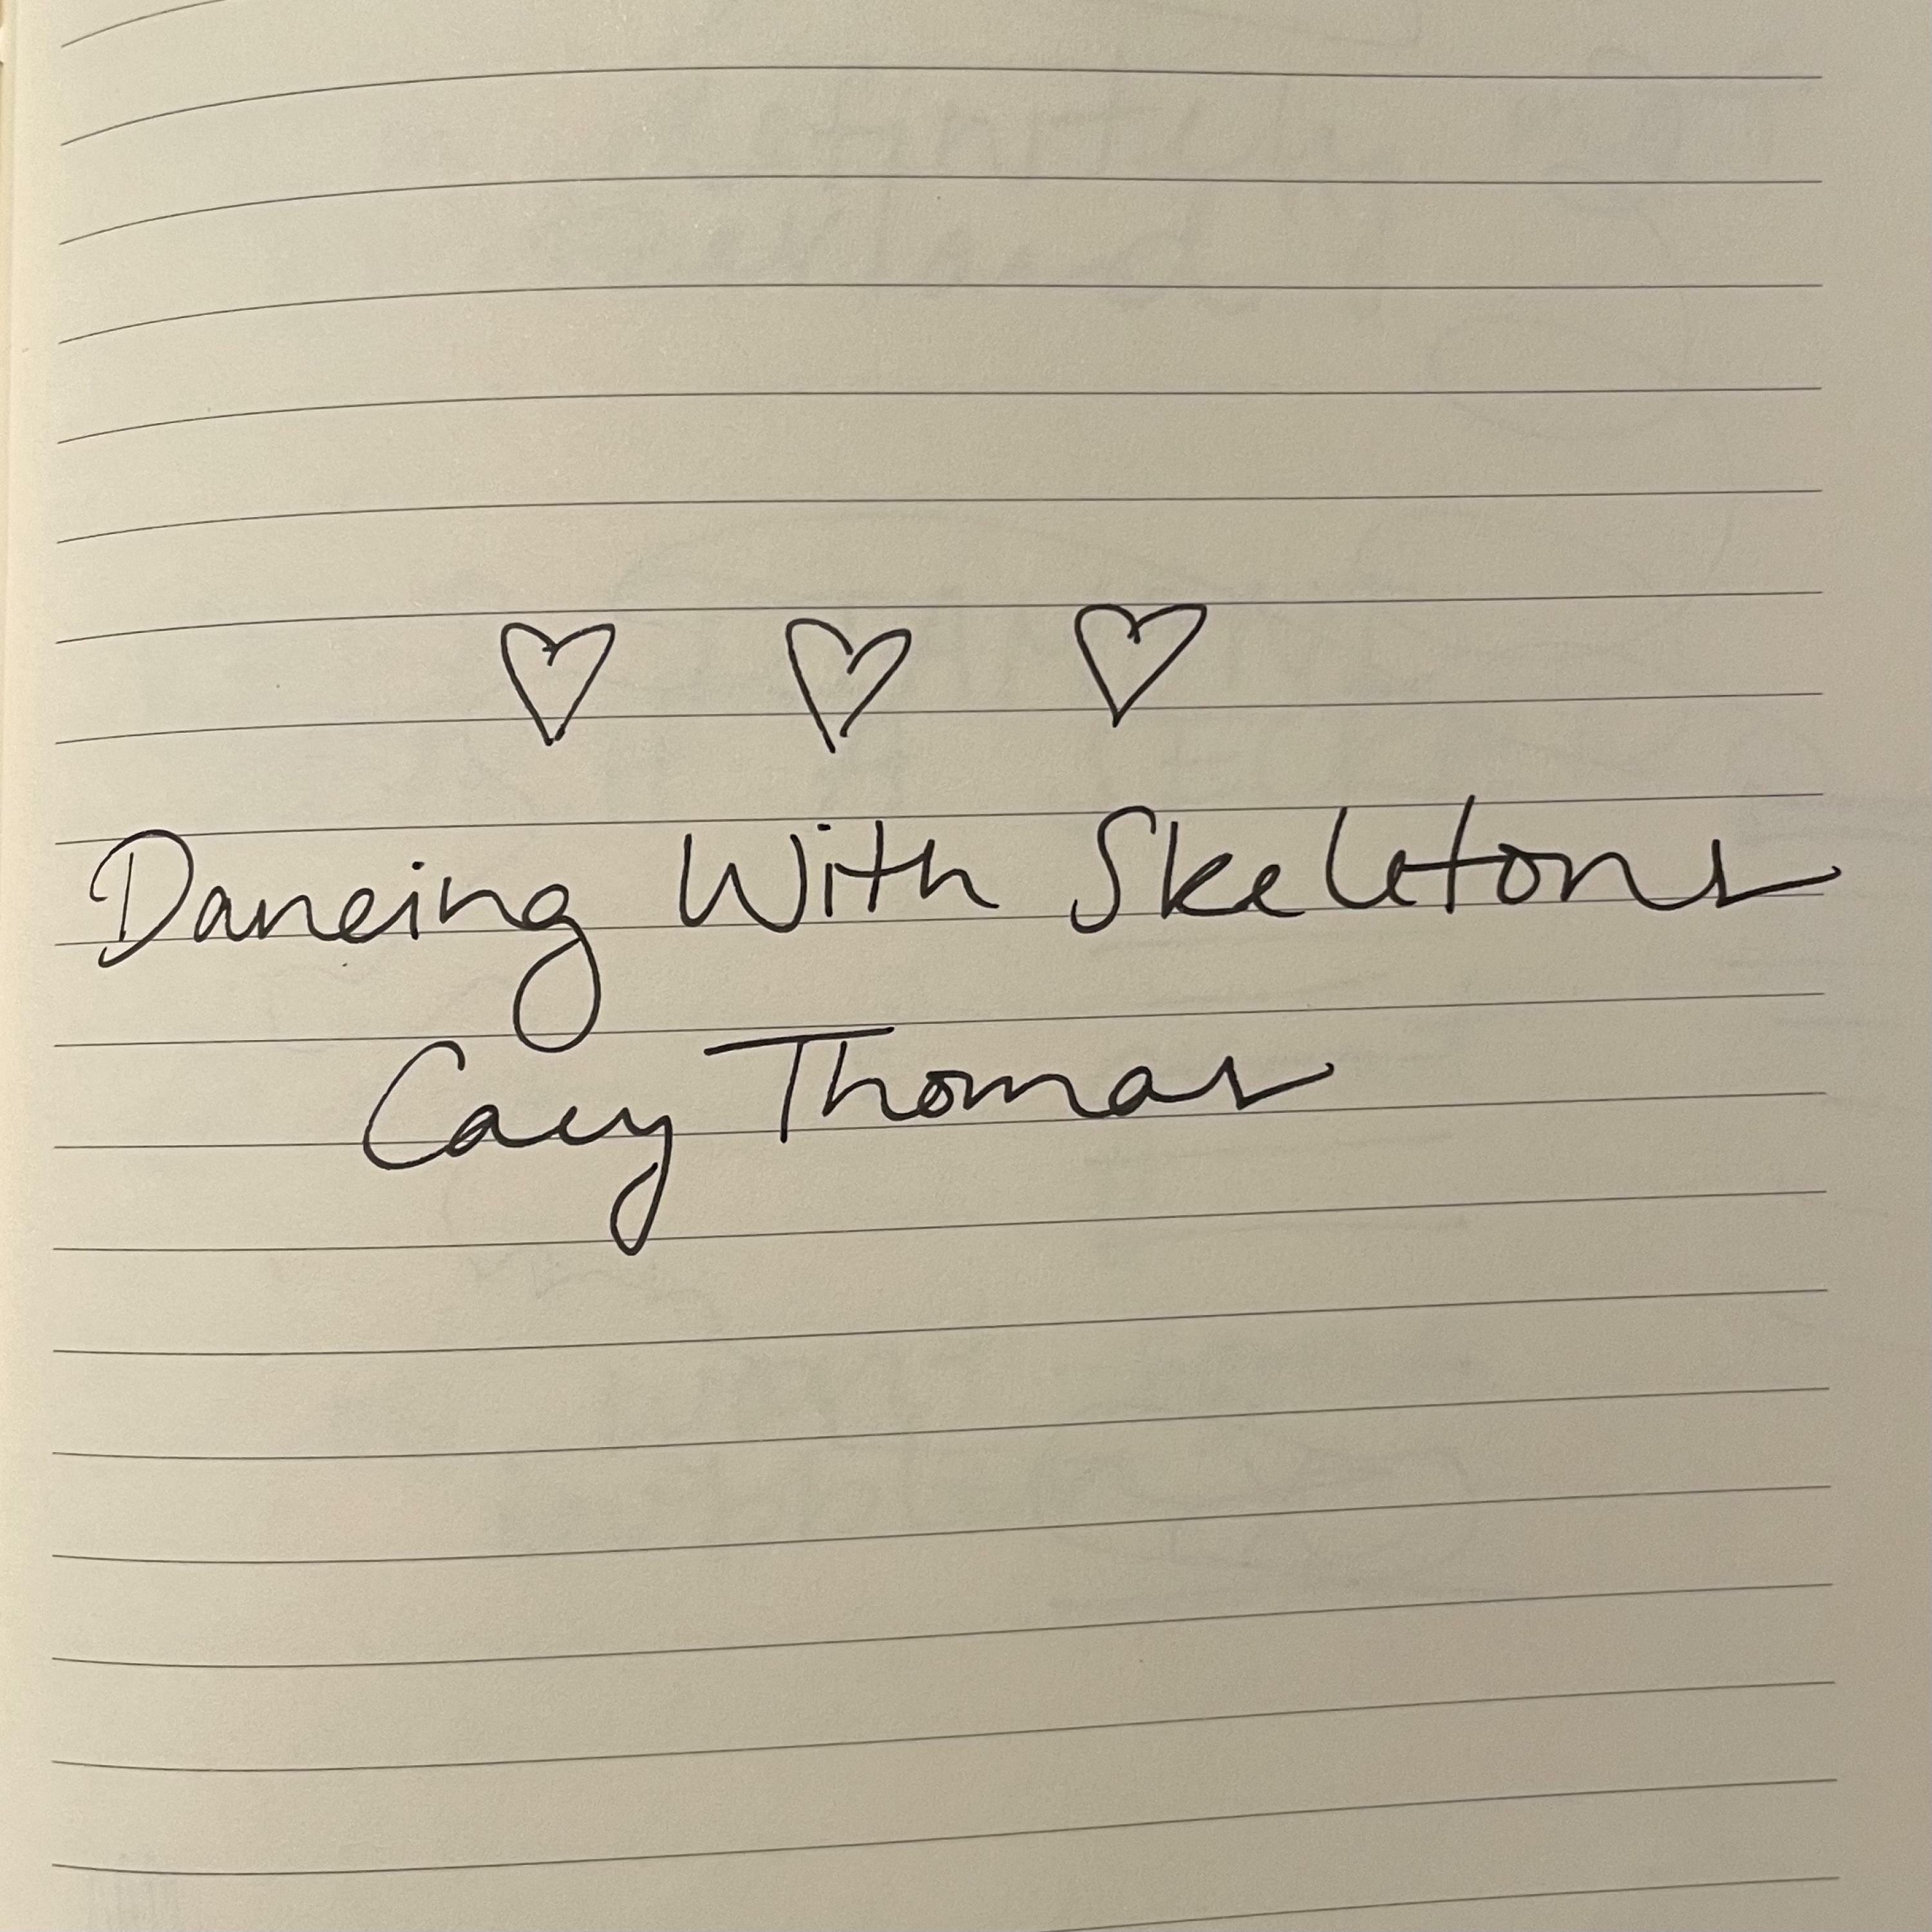 Dancing With Skeletons
Cacy Thomas